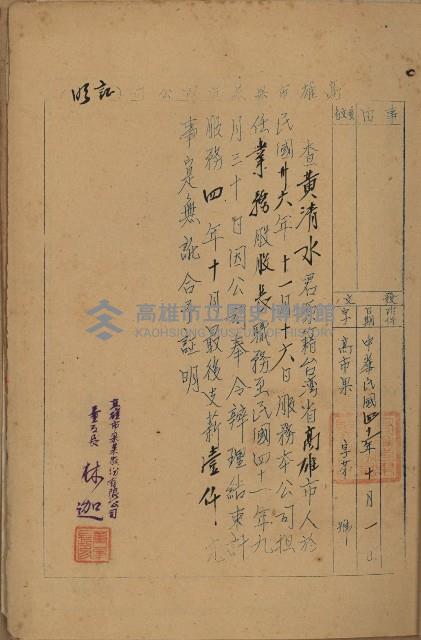 高雄市果菜有限公司
證明
事由
查黃清水君原籍台湾省高雄市人於
民國卅六年十一月十六日服務本公司担
任業務股股長職務至民國四十一年九
月三十日因公司奉令辦理結束計
服務四年十月最後支薪壹仟元
事寔無訛合予証明
發文
附件
日期
字
中華民國四十一年十月一日
高市果 字第 號
高雄市果菜股份有限公司
董事長 林迦
高雄市立歷史博物館
KAOHSIUNG MUSEUM OF HISTORY